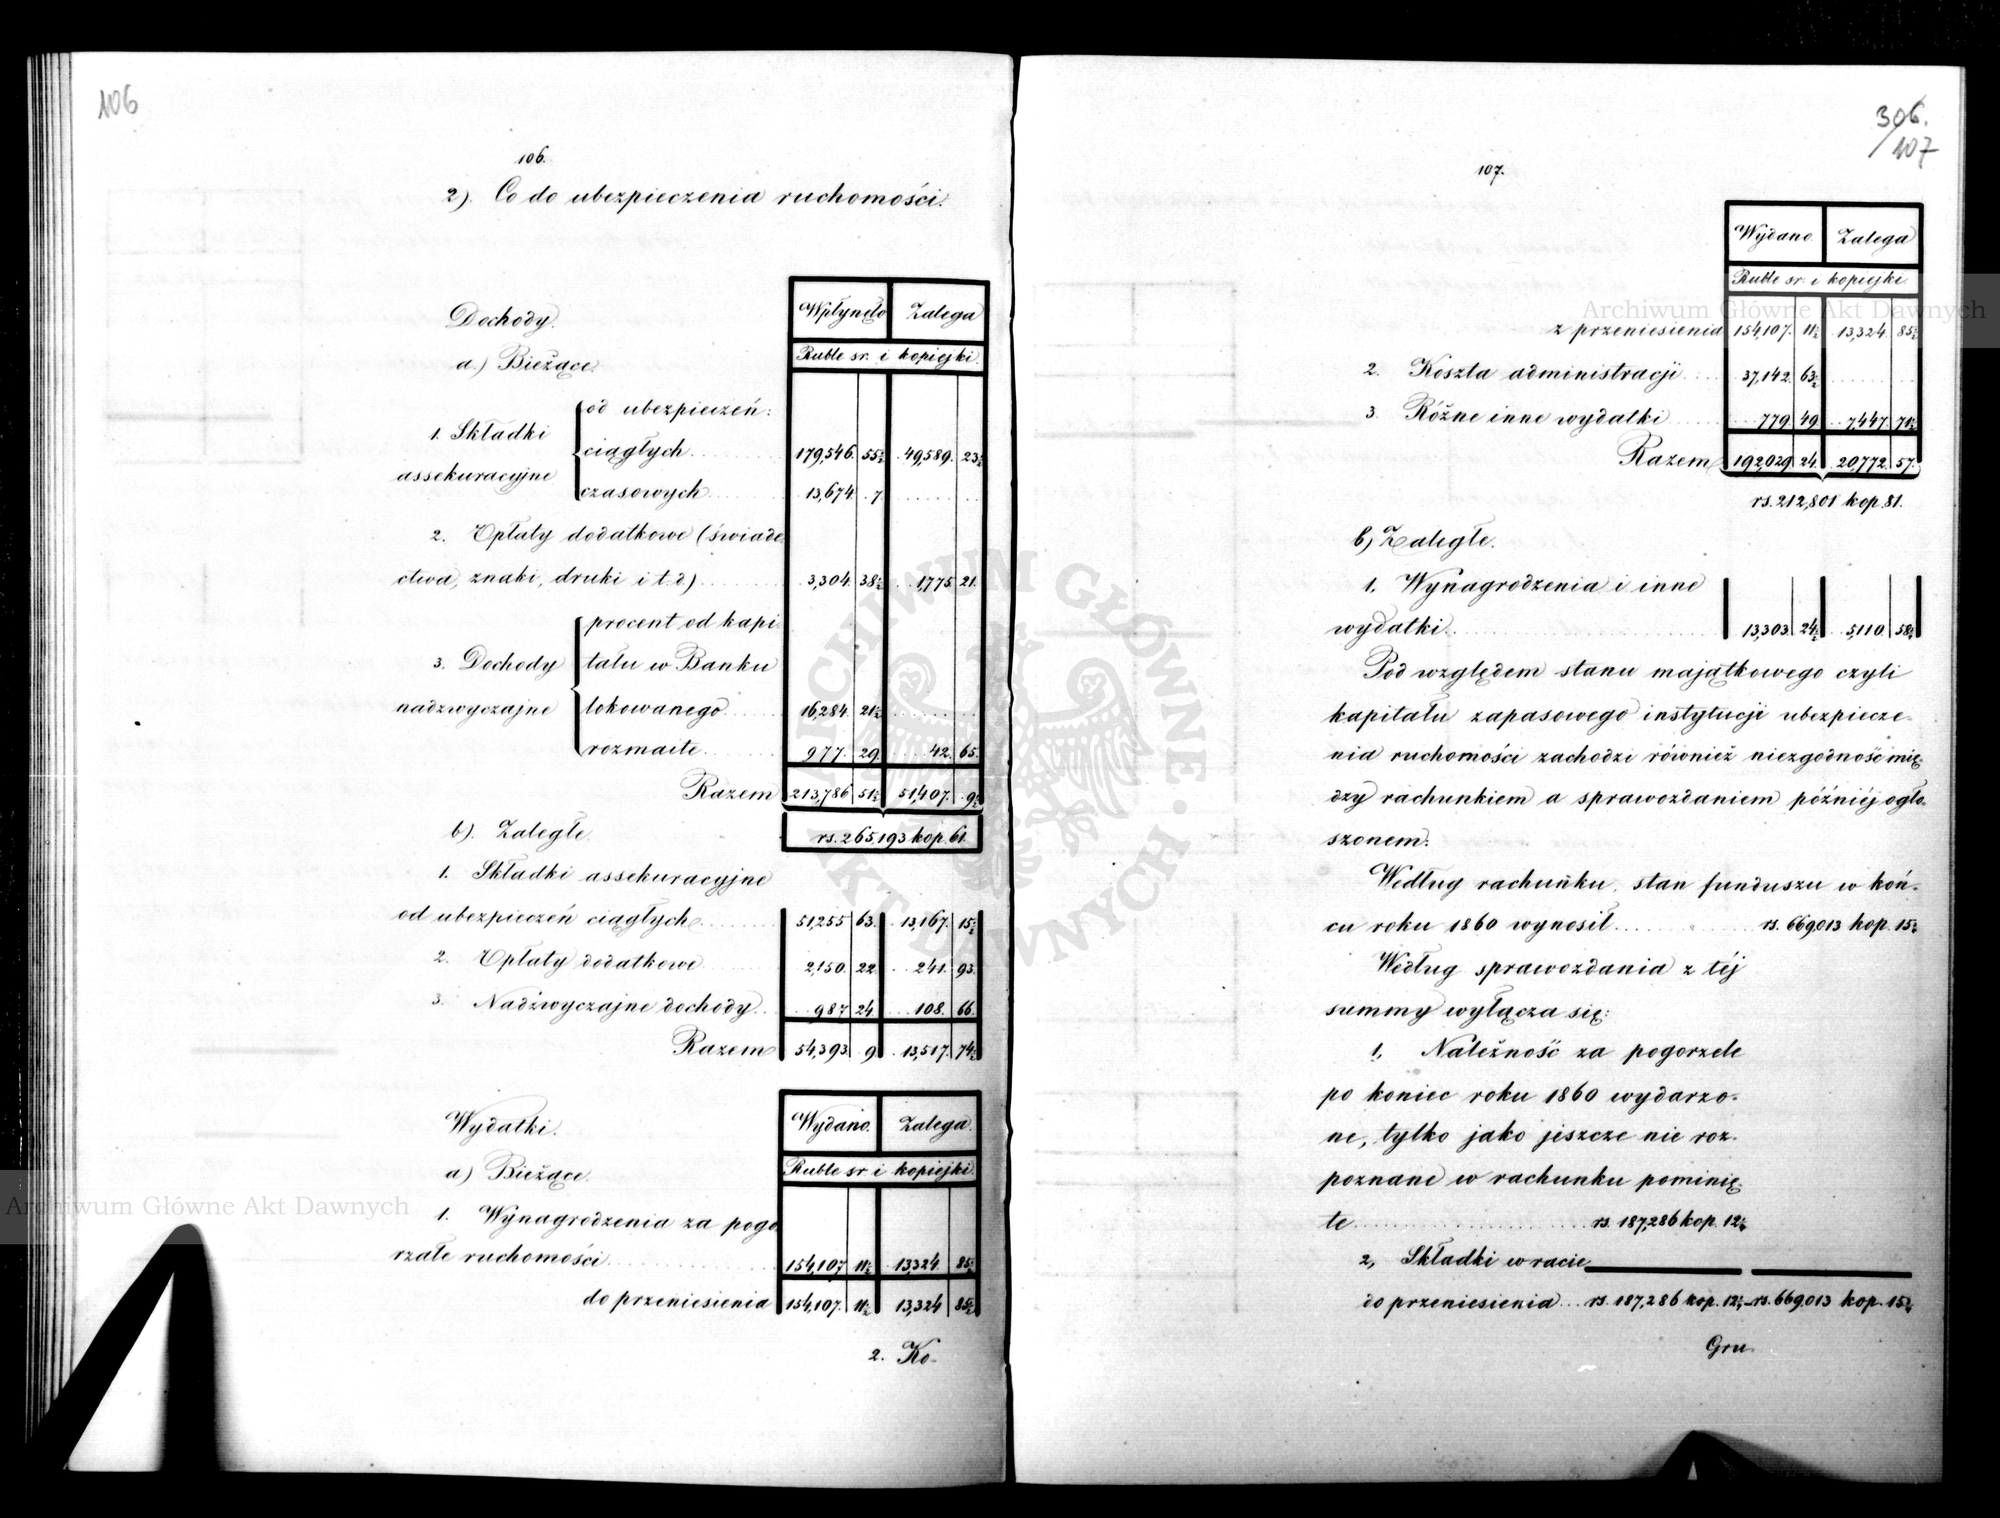 106
106.
2). Co do ubezpieczenia ruchomości.
Wpłynęło Zalega
Dochody.
Ruble sr. i kopiejki.
a.) Bieżące.
od ubezpieczeń:
1. Składki
ciągłych 179,546. 55½ 49,589. 23½
assekuracyjne
czasowych 13,674 7
2. Opłaty dodatkowe (świade
ctwa, znaki, druki i t.d.) 3,304. 38½ 1,775 21.
procent od kapi
3. Dochody tału w Banku
nadzwyczajne lokowanego 16,284. 21½
rozmaite 977. 29. 42. 65.
Razem 213,786 51½ 51,407. 9½
b). Zaległe rs. 265,193 kop. 61.
1. Składki assekuracyjne
od ubezpieczeń ciągłych 51,255 63. 13,167. 15½
2. Opłaty dodatkowe 2,150. 22. 241. 93.
3. Nadzwyczajne dochody 987 24 108. 66.
Razem 54,393. 9 13,517. 74½
Wydatki. Wydano. Zalega.
a) Bieżące. Ruble sr. i kopiejki.
1. Wynagrodzenia za pogo
rzałe ruchomości 154,107 11½ 13,324 85½
do przeniesienia 154,107. 11½ 13,324 85½
2. Ko-
306.
107
107.
Wydano. Zalega
Ruble sr. i kopiejki
z przeniesienia 154,107. 11½ 13,324. 85½
2. Koszta administracji 37,142. 63½
3. Różne inne wydatki 779. 49. 7447. 71½
Razem 192,029. 24. 20,772. 57.
rs. 212,801 kop. 81.
b) Zaległe.
1. Wynagrodzenia i inne
wydatki 13,303. 24½ 5,110. 58½
Pod względem stanu majątkowego czyli
kapitału zapasowego instytucji ubezpiecze-
nia ruchomości zachodzi również niezgodność mię-
dzy rachunkiem a sprawozdaniem później ogło-
szonem.
Według rachunku, stan funduszu w koń-
cu roku 1860 wynosił rs. 669,013 kop. 15½
Według sprawozdania z téj
summy wyłącza się:
1, Należność za pogorzele
po koniec roku 1860 wydarzo-
ne, tylko jako jeszcze nie roz-
poznane w rachunku pominię-
te rs. 187,286 kop. 12½
2, Składki w racie
do przeniesienia rs. 187,286 kop. 12½ – rs. 669,013 kop. 15½
Gru-
Archiwum Główne Akt Dawnych
Archiwum Główne Akt Dawnych
ARCHIWUM GŁÓWNE AKT DAWNYCH